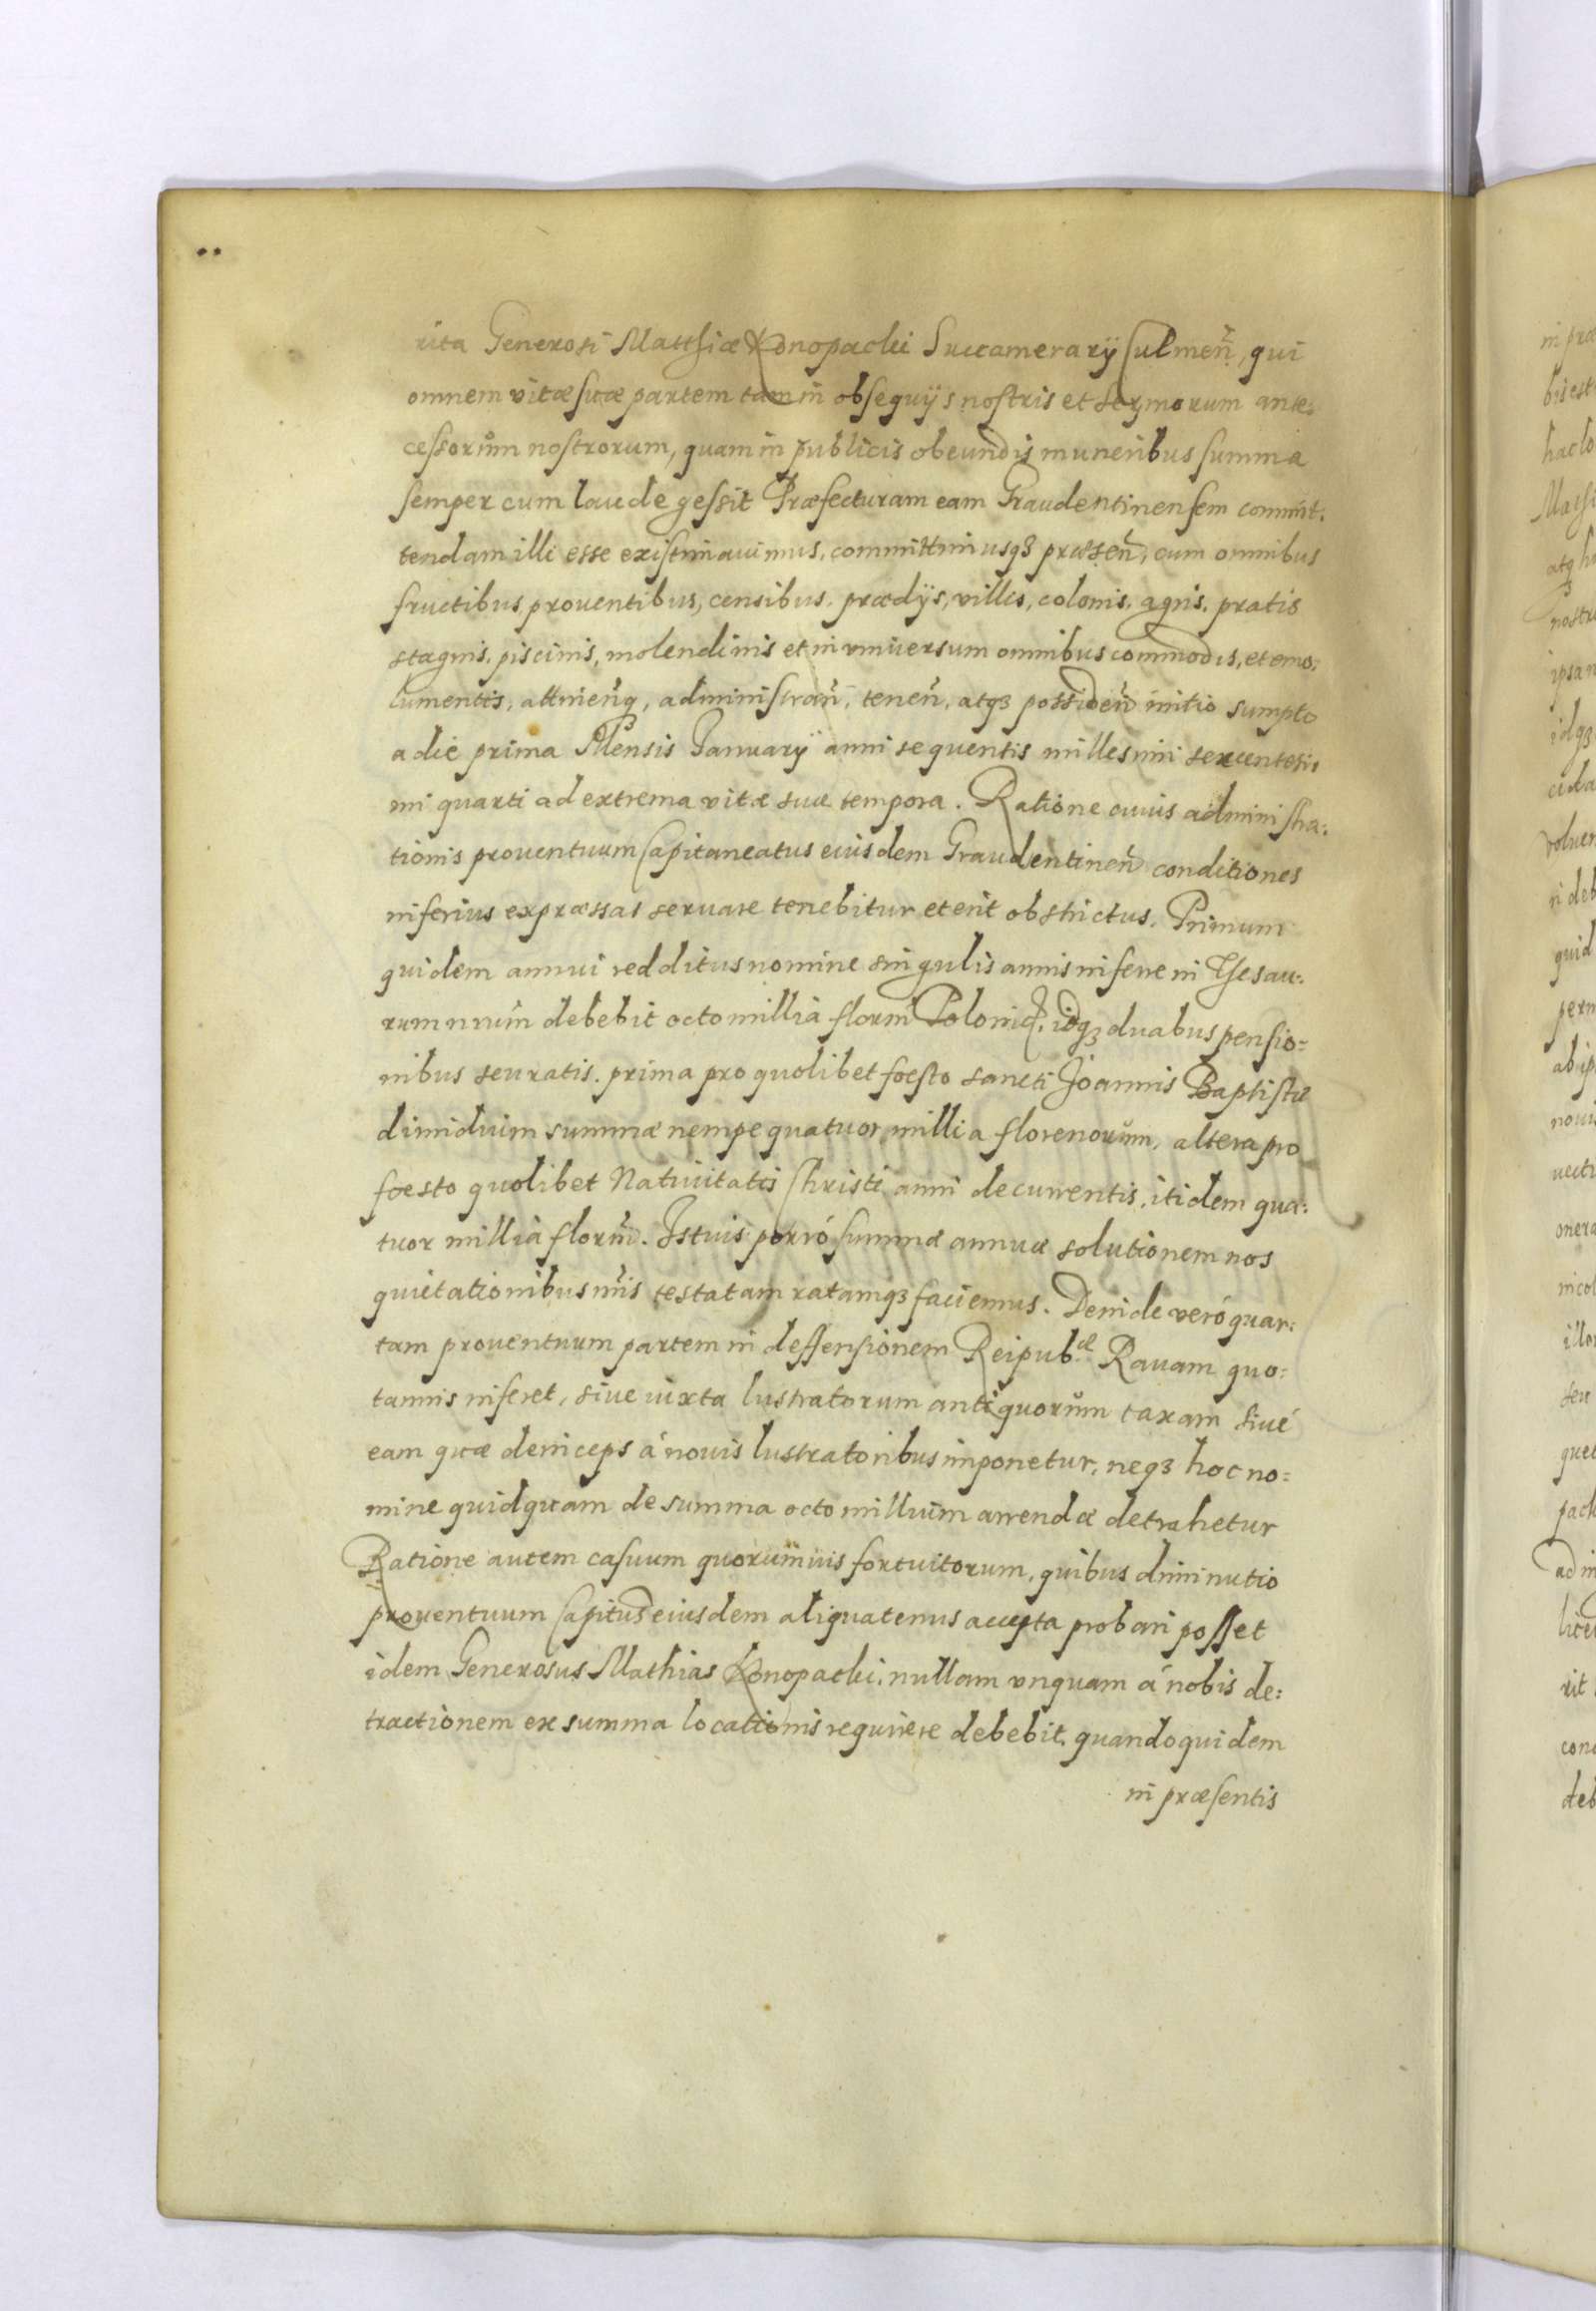 rita Generosi Matthiæ Konopacki Succamerarÿ Culmeñ, qui
omnem vitæ suæ partem tam in obsequÿs nostris et Sermorum ante:
cessorum nostrorum, quam in publicis obeundis muneribus summa
semper cum laude gessit Præfecturam eam Graudentinensem commit:
tendam illi esse existimauimus, committimusqꝫ præseñ, cum omnibus
fructibus prouentibus, censibus, prædÿs, villis, colonis, agris, pratis
stagnis, piscinis, molendinis et in vniuersum omnibus commodis, et emo:
lumentis, attineñqꝫ, administrañ, teneñ, atqꝫ possideñ initio sumpto
a die prima Mensis Januarÿ anni sequentis millesimi sexcentesi:
mi quarti ad extrema vitæ suæ tempora. Ratione cuius administra:
tionis prouentuum Capitaneatus eiusdem Graudentineñ conditiones
inferius expræssas seruare tenebitur et erit obstrictus. Primum
quidem annui redditus nomine singulis annis inferre in Thesau:
rum nrum debebit octo millia florm Polonic, idqꝫ duabus pensio=
nibus seu ratis. prima pro quolibet foesto sancti Joannis Baptistæ
dimidium summæ nempe quatuor millia florenorum, altera pro
foesto quolibet Natiuitatis Christi anni decurrentis, itidem qua:
tuor millia florm. Istuis porró summæ annuæ solutionem nos
quietationibus nris testatam ratamqꝫ faciemus. Deinde veró quar:
tam prouentuum partem in deffensionem Reipubcæ Rauam quo=
tannis inferet, siue iuxta lustratorum antiquorum taxam siué
eam quæ deinceps á nouis lustratoribus imponetur, neqꝫ hoc no=
mine quidquam de summa octo millium arrendæ detrahetur
Ratione autem casuum quorumuis fortuitorum, quibus diminutio
prouentuum Capitus eiusdem aliquatenus accepta probari posset
idem Generosus Mathias Konopacki, nullam vnquam á nobis de:
tractionem ex summa locationis requirere debebit, quandoquidem
in præsentis